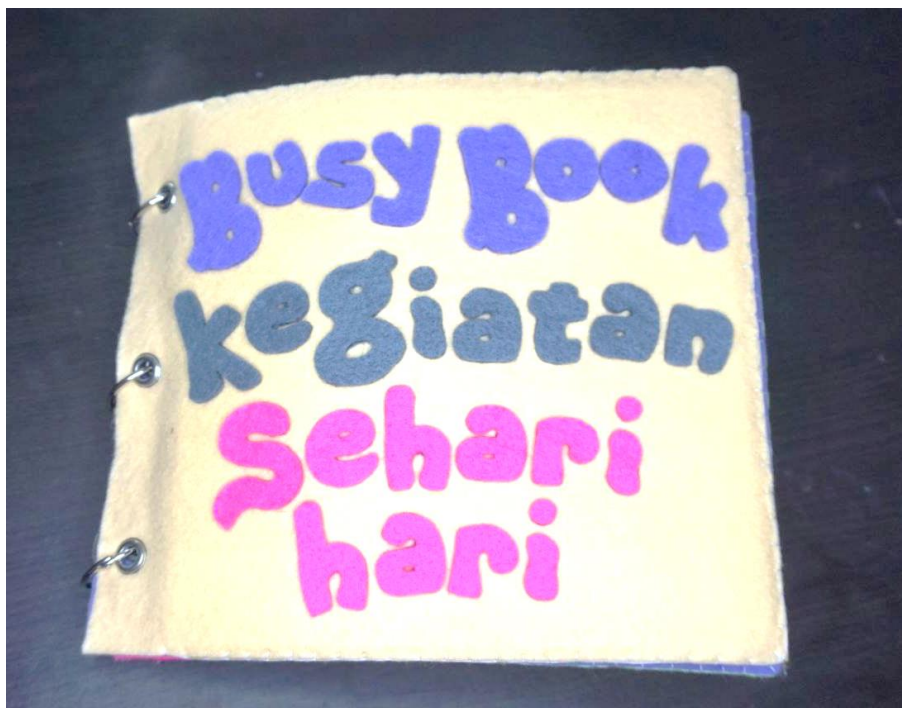 Busy Book
kegiatan
Sehari
hari